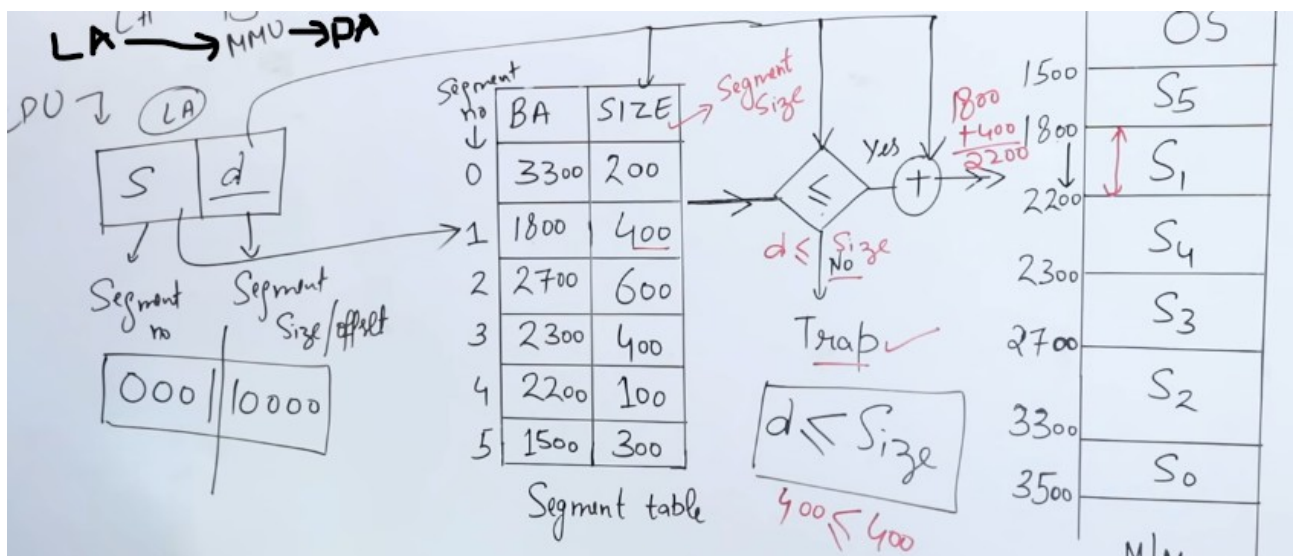 LA → MMU → PA
LA
S d
Segment no
Segment Size/offset
000 10000
Segment no
BA SIZE
0 3300 200
1 1800 400
2 2700 600
3 2300 400
4 2200 100
5 1500 300
Segment table
Segment Size
≤
Yes
+
d ≤ Size
No
Trap
d ≤ Size
400 ≤ 400
1800
+400
2200
OS
1500
S5
1800
S1
2200
S4
2300
S3
2700
S2
3300
S0
3500